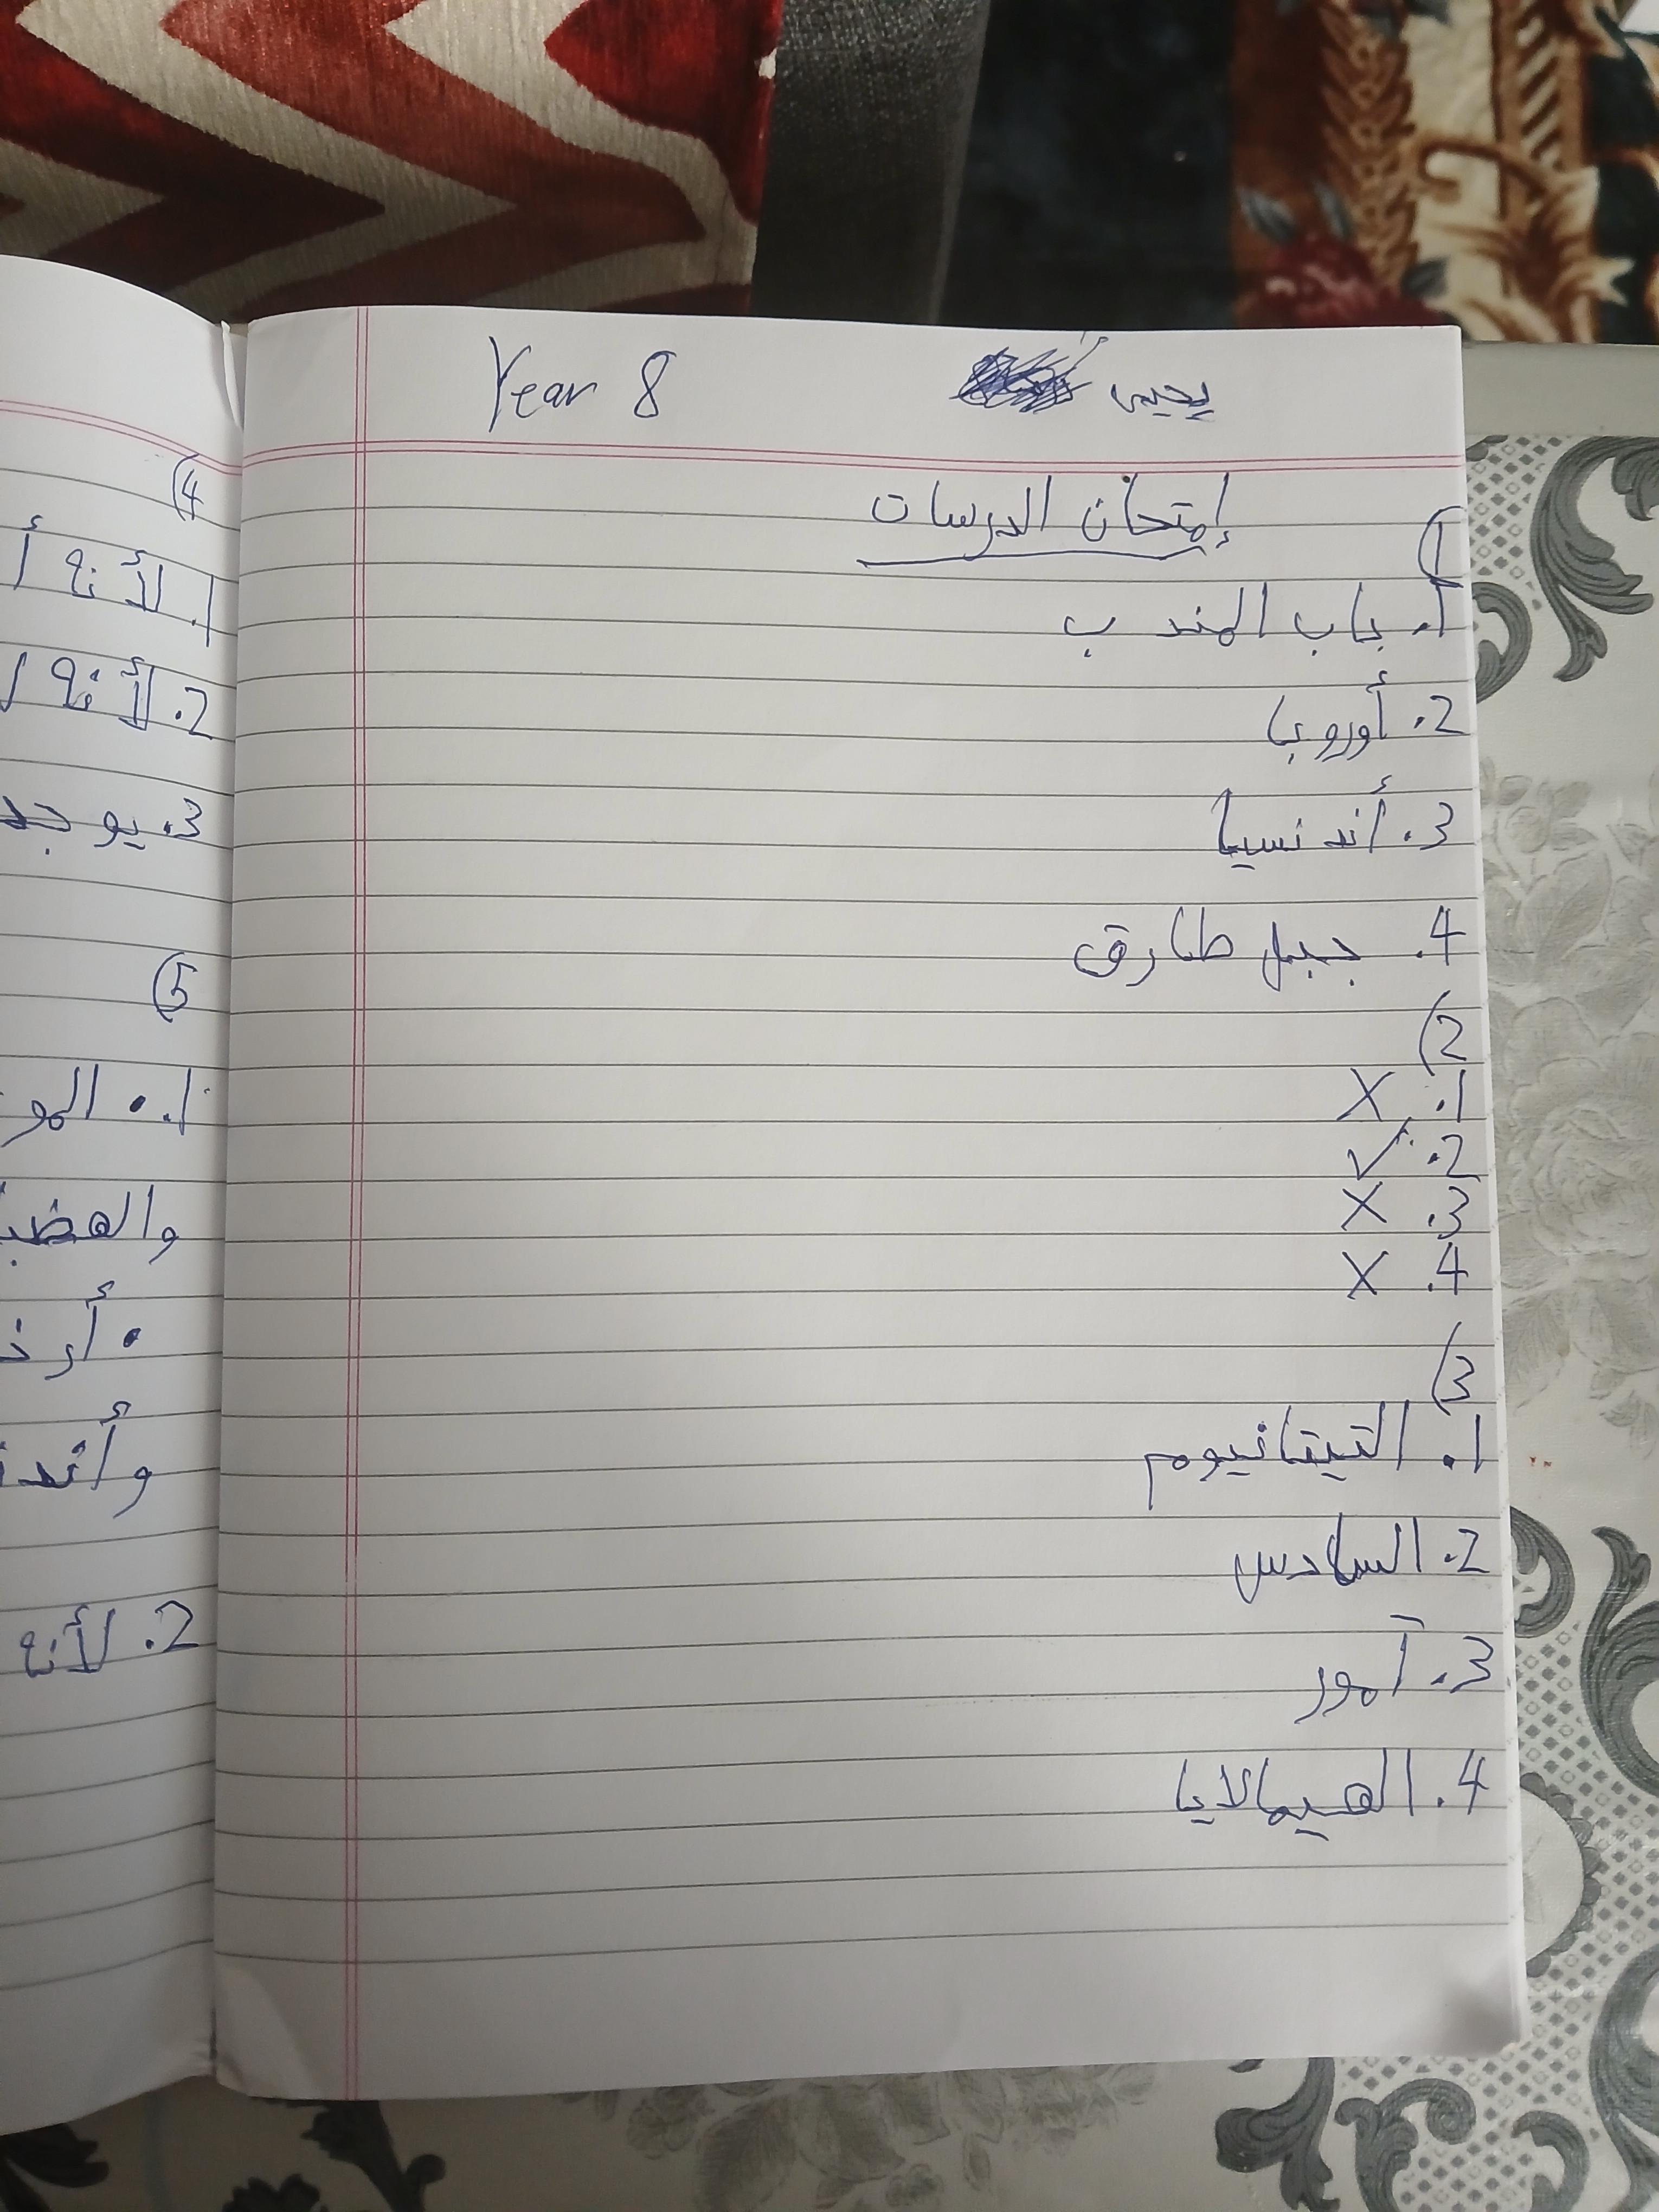 يحيى Year 8
إمتحان الدرسات
(1
1. باب المندب
2. أوروبا
3. أندنسيا
4. جبل طارق
(2
1. X
2. ✓
3. X
4. X
(3
1. التيتانيوم
2. السادس
3. آمور
4. الهيمالايا
(4
1. لأنه أ
2. لأنه
3. يوجد
(5
1. • المو
والهضبا
• أر
وأند
2. لأنه